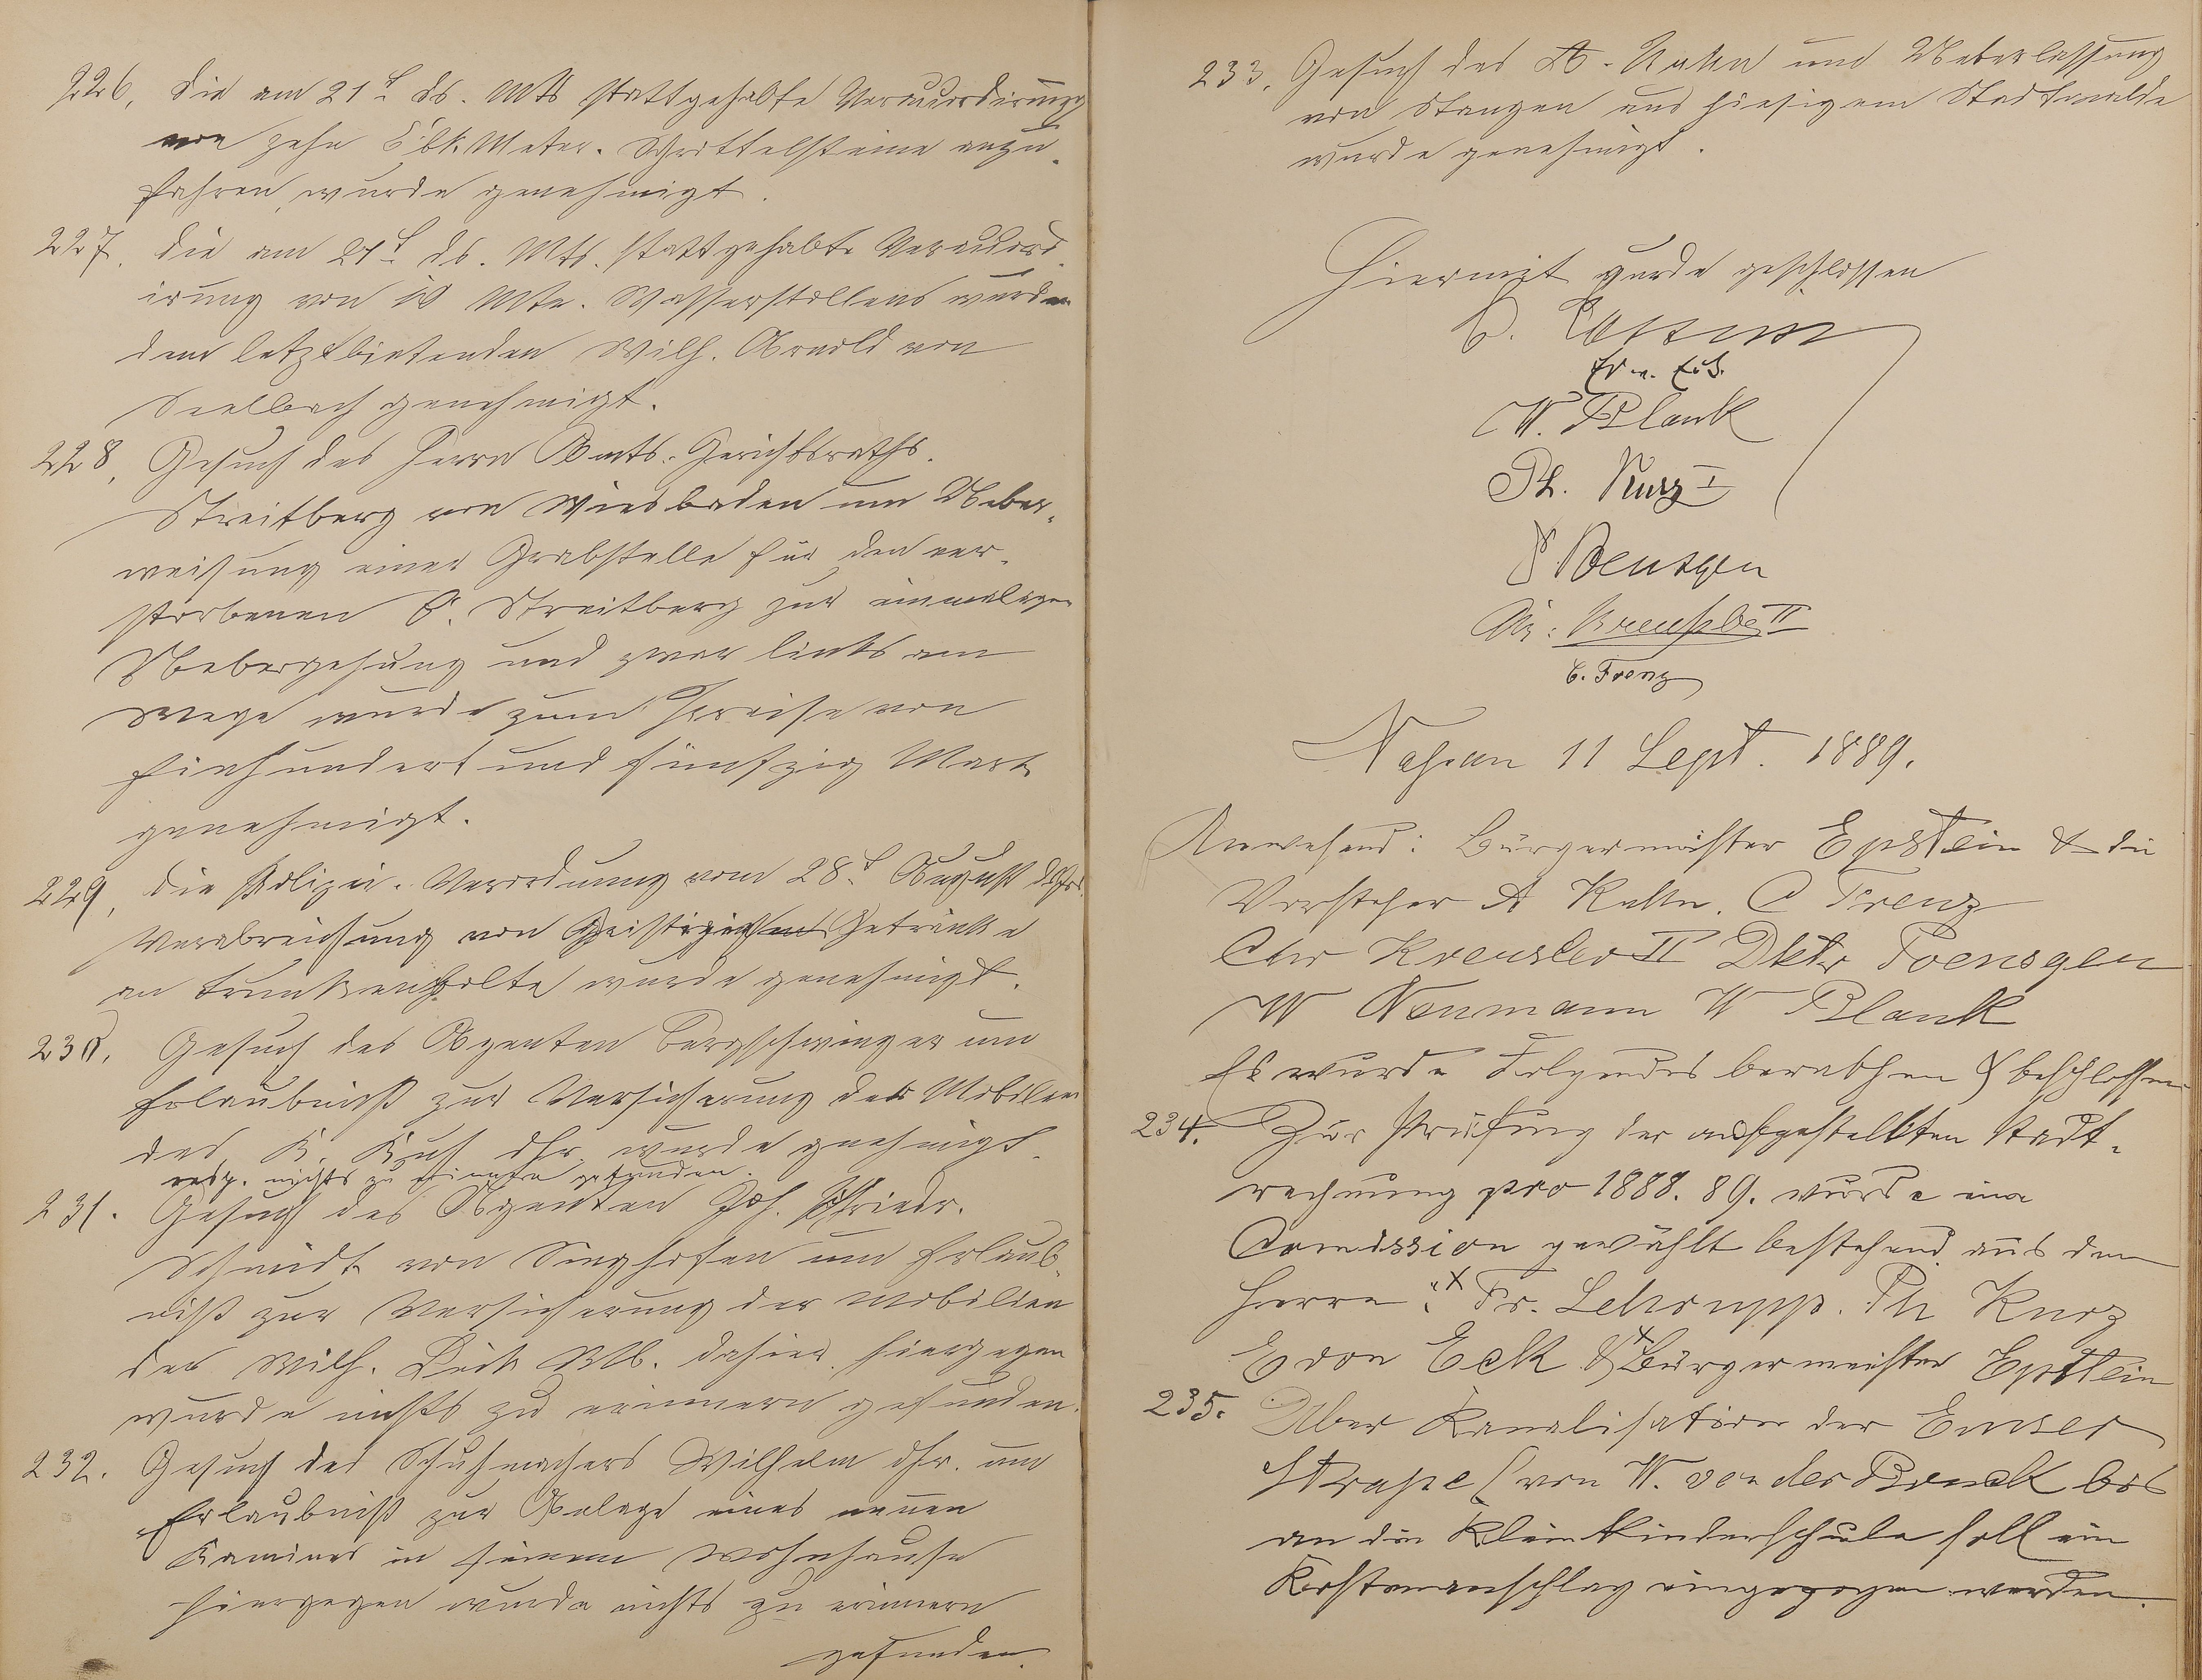 226, Die am 21t ds. Mts stattgehabte Veraccordirung
von zehn Cbk. Meter. Schrottelsteine anzu-
fahren, wurde genehmigt.
227, Die am 21t ds. Mts. stattgehabte Veraccord-
irung von 10 Mtr. Wasserstollens wurde
dem letztbietenden Wilh. Arnold von
Seelbach genehmigt.
228, Gesuch des Herrn Amts-Gerichtsraths
Streitberg von Wiesbaden um Ueber-
weisung einer Grabstelle für den ver-
storbenen C. Streitberg zur einmaligen
Uebergehung und zwar links am
Wege wurde zum Preise von
Einhundert und fünfzig Mark
genehmigt.
229, Die Polizei-Verordnung vom 28t August ds Js
Verabreichung von Geistigen Getränke
an Trunkenbolte wurde genehmigt.
230. Gesuch des Agenten Bergschwinger um
Erlaubniß zur Versicherung der Mobilien
des K. dhr. wurde genehmigt.
resp. nichts zu erinnern gefunden.
231. Gesuch des Agenten Joh. Friedr.
Schmidt von Singhofen um Erlaub-
niß zur Versicherung der Mobilien
des Wilh. dahier. hiergegen
wurde nichts zu erinnern gefunden.
232. Gesuch des Schuhmachers Wilhelm dhr. um
Erlaubniß zur Anlage eines neuen
Kamines in seinem Wohnhause
hiergegen wurde nichts zu erinnern
gefunden.
233. Gesuch des A. Kuhn um Ueberlassung
von Stangen aus hiesigem Stadtwalde
wurde genehmigt.
Hiermit wurde geschlossen
W. Blank
Ph. Kurz I
Poensgen
Chr. Kreusler II
C. Trenz
Nassau 11 Sept. 1889.
Anwesend: Bürgermeister Epstein & die
Vorsteher A Kuhn. C Trenz
Chr Kreusler II Dktr Poensgen
W Neumann W Blank
Es wurde Folgendes berathen & beschlossen
234. Zur Prüfung der aufgestellten Stadt-
rechnung pro 1888. 89. wurde eine
Comission gewählt bestehend aus den
Herrn: Fr. Schrupp. Ph Kurz
Edon Eck & Bürgermeister Epstein
235. Über Kanalisation der Emser
Straße (von W. von der Bruck bis
an die Kleinkinderschule soll ein
Kostenanschlag eingezogen werden.